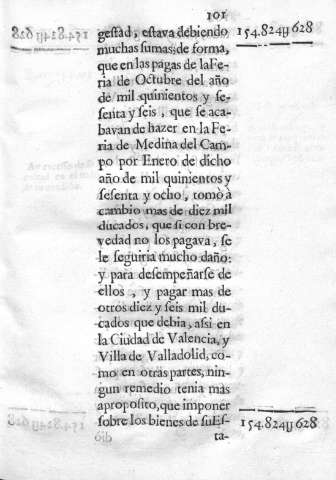 101
154.824ỹ 628
geſtad, eſtava debiendo
muchas ſumas: de forma,
que en las pagas de la Fe-
ria de Octubre del año
de mil quinientos y ſe-
ſenta y ſeis, que ſe aca-
bavan de hazer en la Fe-
ria de Medina del Cam-
po por Enero de dicho
año de mil quinientos y
ſeſenta y ocho, tomò à
cambio mas de diez mil
ducados, que ſi con bre-
vedad no los pagava, ſe
le ſeguiria mucho daño:
y para deſempeñarſe de
ellos, y pagar mas de
otros diez y ſeis mil du-
cados que debia, aſsi en
la Ciudad de Valencia, y
Villa de Valladolid, co-
mo en otras partes, nin-
gun remedio tenia mas
apropoſito, que imponer
ſobre los bienes de ſu Eſ-
154.824ỹ 628
ta-